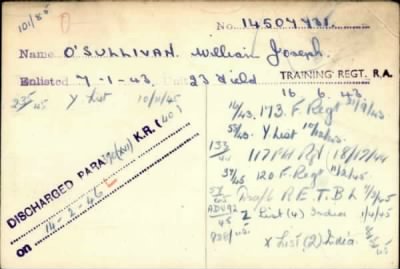 101/85
No. 14507431.
Name O'SULLIVAN. William Joseph.
Enlisted 7-1-43. 23 Field TRAINING REGT. R.A.
16 6 43
235/45 Y List 10/11/45
16/43. 173. F. Regt
55/45. Y List
133/44 117 FH Rgt 18/12/44
37/45 120 F. Regt 11/2/45
57/45 Draft R.E.T.B.L 7/3/45
45 Z List (4) India 1/4/45
X List (2) India.
DISCHARGED PARA K.R. (40)
on 14-2-46